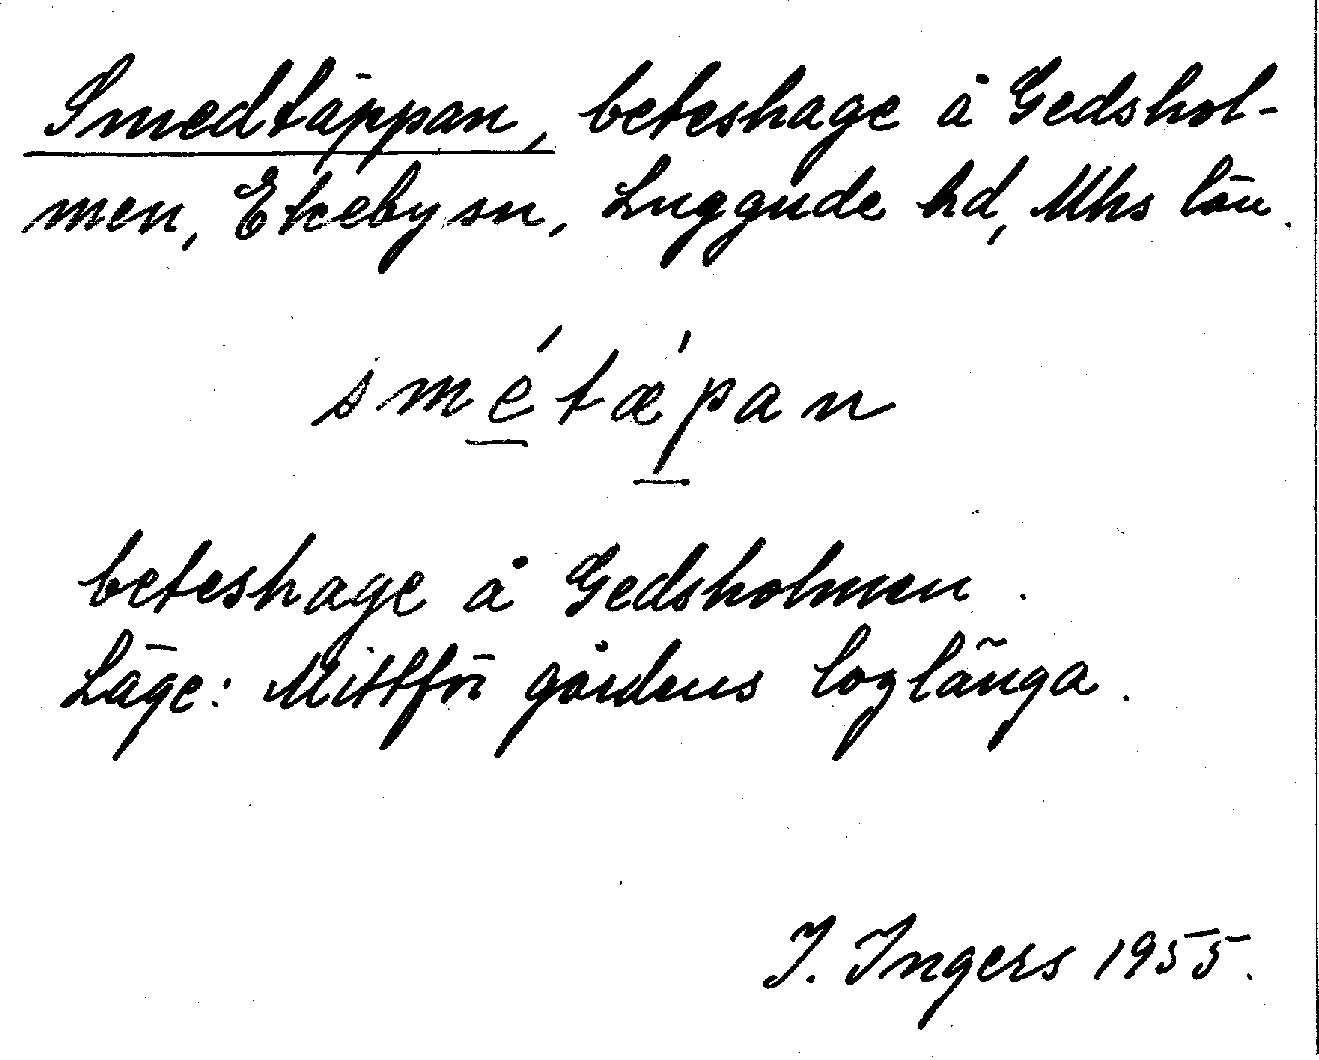 Smedtäppan, beteshage å Gedshol-
men, Ekeby sn, Luggude hd, Mhs län.
smétǽpan
beteshage å Gedsholmen.
Läge: Mittför gårdens loglänga.
I. Ingers 1955.